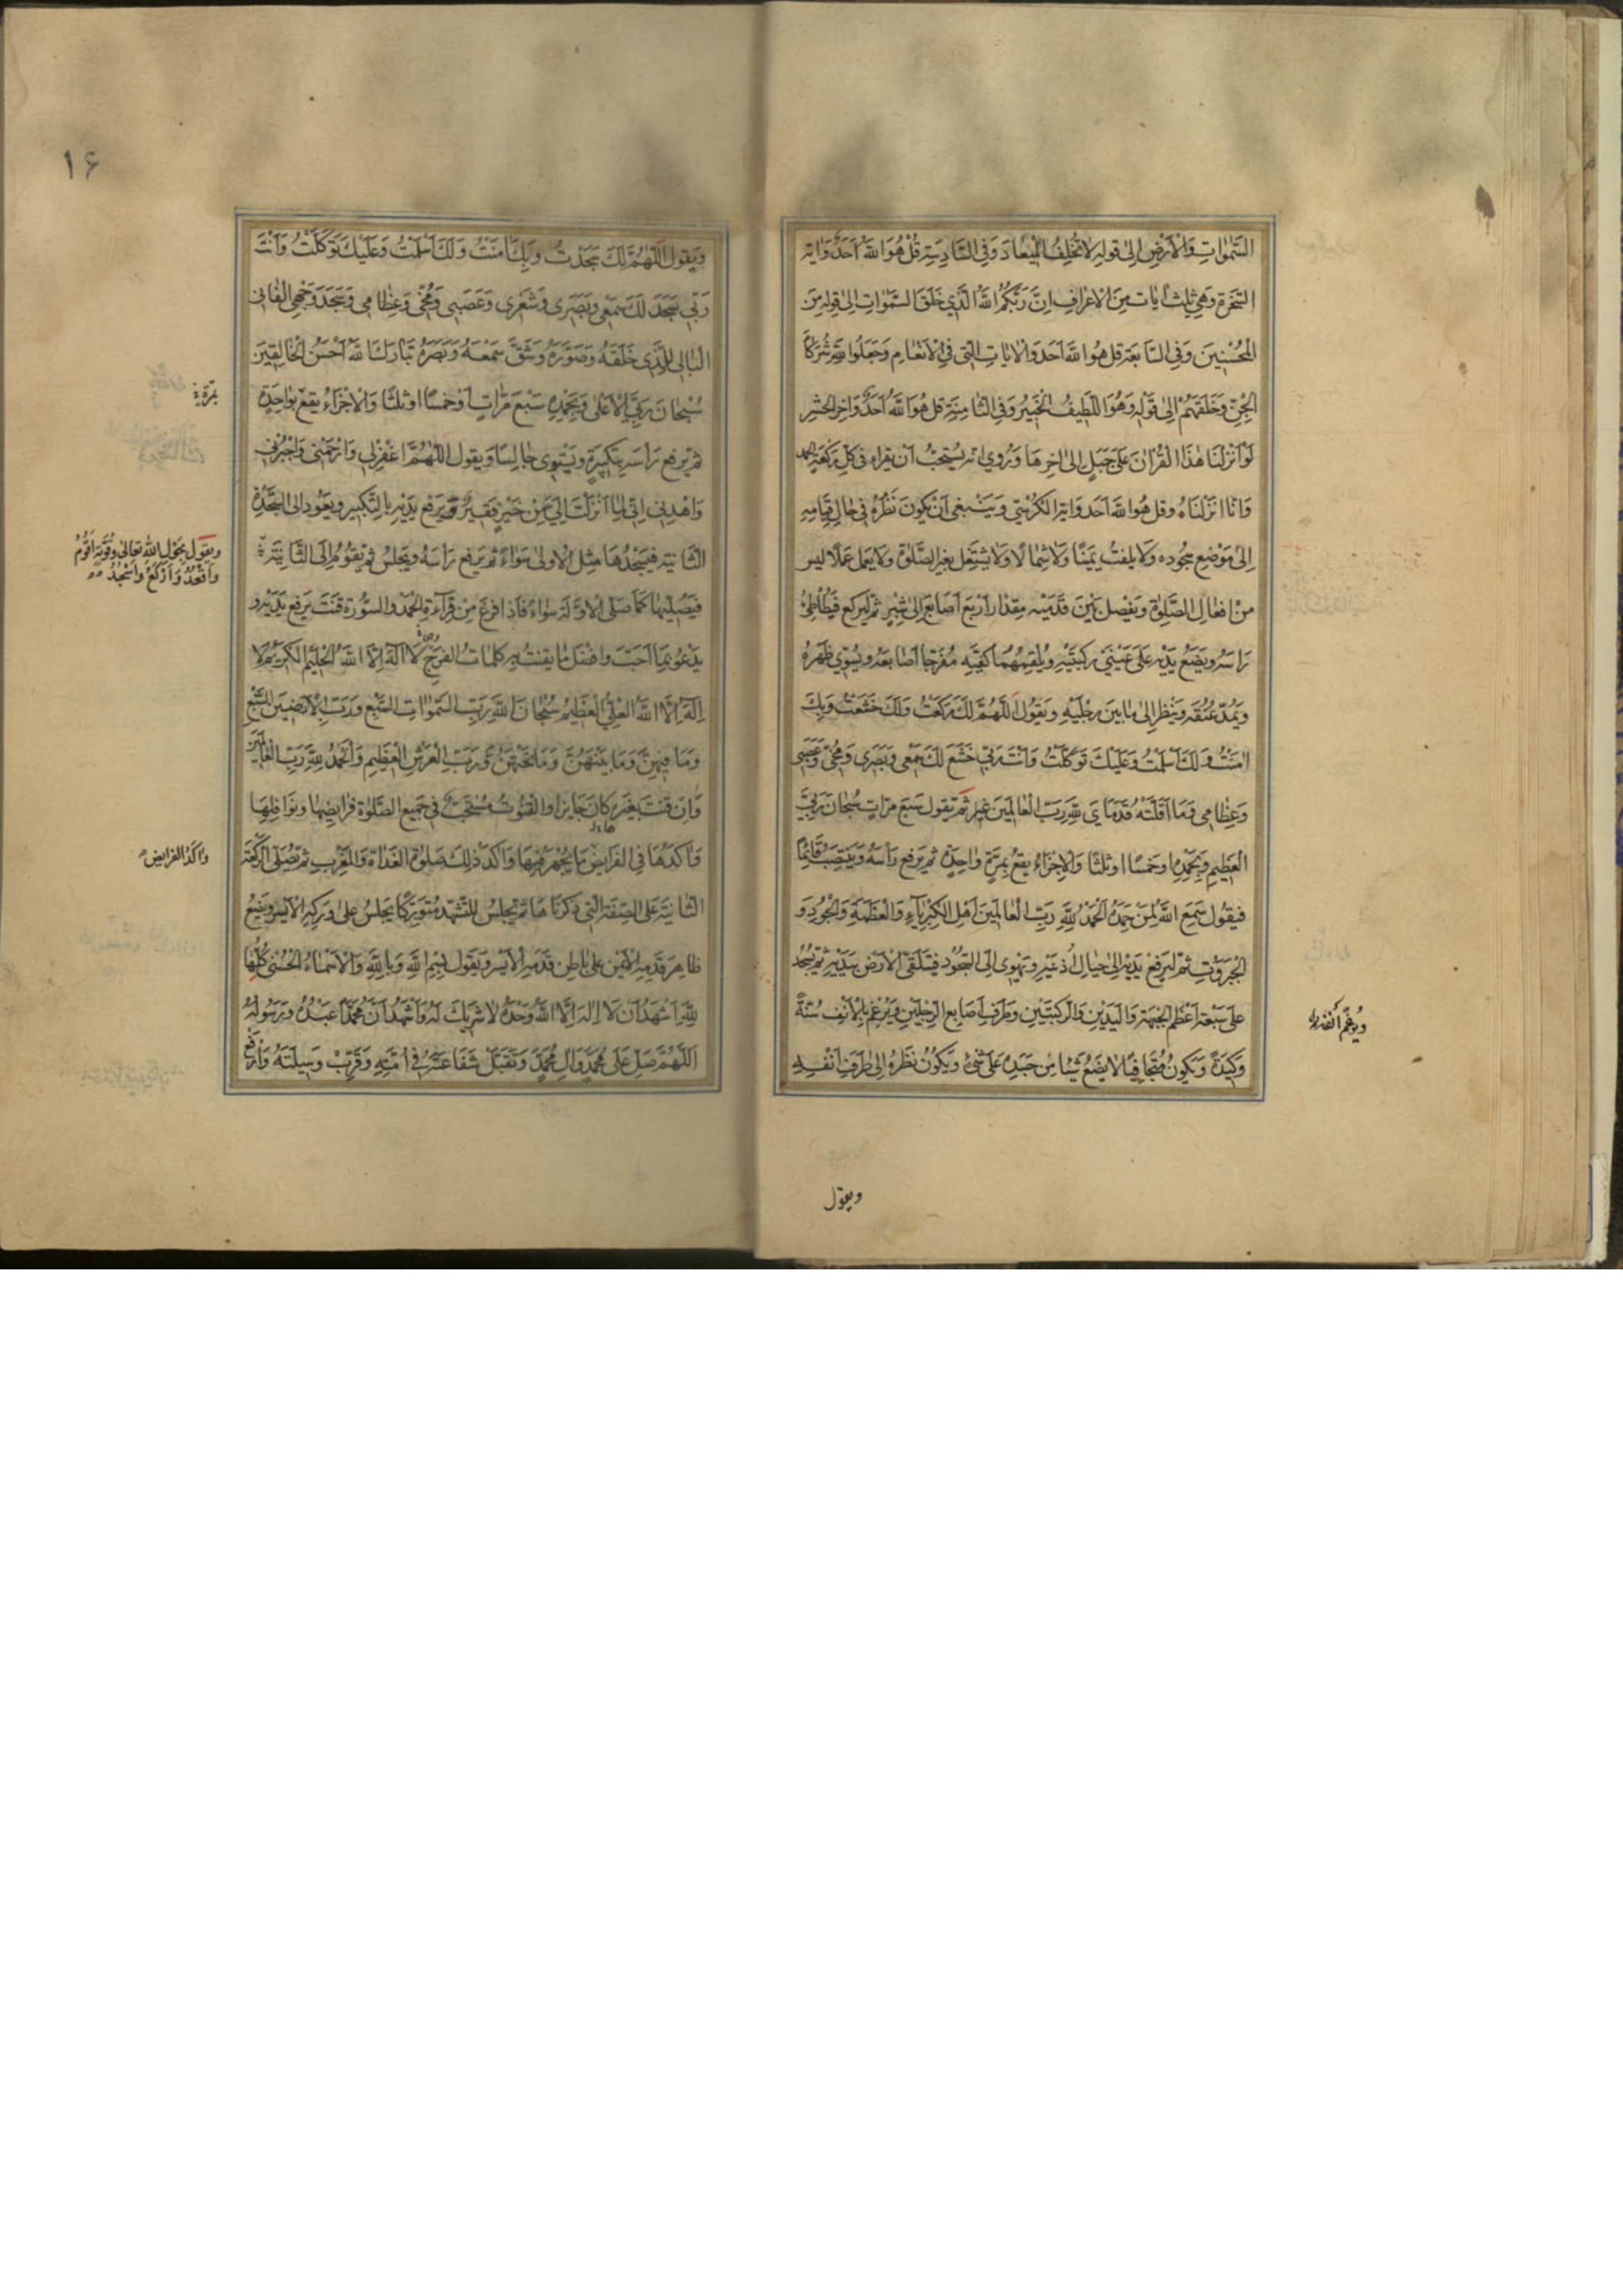 السَّمٰوَاتِ وَالْاَرْضِ اِلٰى قولِهِ لَا تُخْلِفُ الْمِيْعَادَ وَفِى السَّادِسَةِ قُلْ هُوَ اللهُ اَحَدٌ وَايَة
السَّخَرَةِ وَهِيَ ثلث اٰيَات مِنَ الْاَعْرَافِ اِنَّ رَبَّكُمُ اللهُ الَّذِي خَلَقَ السَّمٰوَاتِ اِلٰى قولِهِ مِنَ
الْمُحْسِنِينَ وَفِى السَّابِعَةِ قل هُوَ اللهُ اَحَد وَالْاٰيَاتِ الَّتى فِى الْاَنْعَامِ وَجَعَلُوا لِلهِ شُرَكَاءَ
الْجِنَّ وَخَلَقَهُمْ اِلىٰ قَوْلِهِ وَهُوَ اللَّطِيفُ الْخَبِيرُ وَفِى الثَّامِنَةِ قل هُوَ اللهُ اَحَدٌ وَاخِر الْحَشْرِ
لَوْ اَنْزَلْنَا هٰذَا الْقُرْاٰنَ عَلٰى جَبَلٍ اِلىٰ اخِرِهَا وَرُوِيَ انّه يُسْتَحَبُّ اَنْ يَقْرَاء فِى كُلِّ رَكْعَةٍ الحمد
وَانَّا اَنْزَلْنَاهُ وقل هُوَ اللهُ اَحَد وَايَة الْكُرْسِيّ وَيَنْبَغى اَنْ يَكُونَ نَظَرُهُ فِى حَالِ قِيَامِهِ
اِلىٰ مَوْضِعِ سُجُودِهِ وَلَا يَلْتَفِتُ يَمِيْنًا وَلَا شِمَالًا وَلَا يَشْتَغِل بِغَيْرِ الصَّلٰوةِ وَلَا يَعْمَل عَمَلًا ليس
مِنْ اَفْعَالِ الصَّلٰوةِ وَيَفْصِل بَيْنَ قَدَمَيْهِ مِقْدَارَ اَرْبَعِ اَصَابِعَ اِلىٰ شِبْرٍ ثُمَّ لْيَرْكَع فَيُطَأْطِئُ
رَاسَهُ وَيَضَعُ يَدَيْهِ عَلٰى عَيْنَيْ رُكْبَتَيْهِ وَيُلْقِمُهُمَا كَفَّيْهِ مُفَرّجًا اَصَابِعَهُ وَيُسَوِّي ظَهْرَهُ
وَيَمُدّ عُنُقَهُ وَيَنْظُر اِلىٰ مَا بَيْنَ رِجْلَيْهِ وَيَقُولُ اَللّٰهُمَّ لَكَ رَكَعْتُ وَلَكَ خَشَعْتُ وَبِكَ
اٰمَنْتُ وَلَكَ اَسْلَمْتُ وَعَلَيْكَ تَوَكَّلْتُ وَاَنْتَ رَبِّى خَشَعَ لَكَ سَمْعِى وَبَصَرِى وَمُخِّى وَعَصَبِى
وَعِظَامِى وَمَا اَقَلَّتْهُ قَدَمَاىَ لِلّٰهِ رَبِّ الْعَالَمِينَ ثُمَّ يَقُول سَبْع مَرَّاتٍ سُبْحَانَ رَبِّيَ
الْعَظِيمِ وَبِحَمْدِهِ اَو خَمْسًا او ثلثًا وَالْاِجْزَاءُ يَقَعُ بِمَرَّةٍ وَاحِدَةٍ ثم يَرْفَع رَأسَهُ وَيَنْتَصِبُ قَائِمًا
فَيَقُول سَمِعَ اللهُ لِمَنْ حَمِدَهُ اَلْحَمْدُ لِلّٰهِ رَبِّ الْعَالَمِينَ اَهْلِ الْكِبْرِيَاءِ وَالْعَظَمَةِ وَالْجُودِ وَ
الْجَبَرُوتِ ثُمَّ لْيَرْفَعْ يَدَيْهِ اِلىٰ حِيَالِ اُذُنَيْهِ وَيَهْوِى اِلَى السُّجُودِ فَيَتَلَقَّى الْاَرْضَ بِيَدَيْهِ ثُمَّ يَسْجُد
عَلٰى سَبْعَةِ اَعْظُمِ الْجَبْهَةِ وَالْيَدَيْنِ وَالرُّكْبَتَيْنِ وَطَرَفِ اَصَابِعِ الرِّجْلَيْنِ وَيُرْغِمُ بِالْاَنْفِ سُنَّةً
وَكِيدَةً وَيَكُونُ مُتَجَافِيًا لَا يَضَعُ شَيْئًا مِنْ جَسَدِهِ عَلٰى شَىْءٍ وَيَكُونُ نَظَرُهُ اِلىٰ طَرَفِ اَنْفِهِ
وَيُرغِم اَنْفَهُ
ويقول
١۶
وَيَقُولُ اَللّٰهُمَّ لَكَ سَجَدْتُ وَبِكَ اٰمَنْتُ وَلَكَ اَسْلَمْتُ وَعَلَيْكَ تَوَكَّلْتُ وَاَنْتَ
رَبِّى سَجَدَ لَكَ سَمْعِى وَبَصَرِى وَشَعْرِى وَعَصَبِى وَمُخِّى وَعِظَامِى وَسَجَدَ وَجْهِى الْفَانِى
الْبَالِى لِلَّذِى خَلَقَهُ وَصَوَّرَهُ وَشَقَّ سَمْعَهُ وَبَصَرَهُ تَبَارَكَ اللهُ اَحْسَنُ الْخَالِقِينَ
سُبْحَانَ رَبِّيَ الْاَعْلٰى وَبِحَمْدِهِ سَبْعَ مَرَّاتٍ اَوْ خَمْسًا او ثلثًا وَالْاِجْزَاءُ يقع بِوَاحِدَةٍ
بمَرّة
ثم يَرْفع رَأْسَهُ بِتَكْبِيرَةٍ وَيَسْتَوِى جَالِسًا وَيقول اَللّٰهُمَّ اغْفِرْلِى وَارْحَمْنِى وَاجْبُرْنِى
وَاهْدِنِى اِنِّى لِمَا اَنْزَلْتَ اِلَيَّ مِنْ خَيْرٍ فَقِيرٌ وَيَرْفع يَدَيْهِ بِالتَّكْبِيرِ وَيَعُود اِلَى السَّجْدَةِ
الثَّانِيَةِ فَيَسْجُدُهَا مِثْلَ الْاُولٰى سَوَاءً ثُمَّ يَرْفع رَاسَهُ وَيَجْلِسُ ثُمَّ يَقُومُ اِلَى الثَّانِيَةِ
وَيَقُول بِحَوْلِ اللهِ تَعَالٰى وَقُوَّتِهِ اَقُومُ
وَاَقْعُدُ وَاَرْكَعُ وَاَسْجُدُ
فَيُصَلِّيهَا كَمَا صَلَّى الْاَوَّلَة سَوَاء فَاِذَا فرغَ مِنْ قِرَآءَةِ الْحَمْدِ وَالسُّورَةِ قَنَتَ يَرفع يَدَيْهِ وَ
يَدْعُو بِمَا اَحَبَّ وَافْضَل مَا يَقْنُتُ بِهِ كَلِمَاتُ الْفَرَجِ لَا اِلٰهَ اِلَّا اللهُ الْحَلِيمُ الْكَرِيمُ لَا
اِلٰهَ اِلَّا اللهُ الْعَلِيُّ الْعَظِيمُ سُبْحَانَ اللهِ رَبِّ السَّمٰوَاتِ السَّبْعِ وَرَبِّ الْاَرَضِينَ السَّبْعِ
وَمَا فِيهِنَّ وَمَا بَيْنَهُنَّ وَمَا تَحْتَهُنَّ وَرَبِّ الْعَرْشِ الْعَظِيمِ وَالْحَمْدُ لِلّٰهِ رَبِّ الْعَالَمِينَ
وَاِنْ قَنَتَ بِغَيْرِهِ كَانَ جَايِزًا وَالْقُنُوتُ مُسْتَحَبٌّ فِى جَمِيعِ الصَّلٰوةِ فَرَايِضِهَا وَنَوَافِلِهَا
وَاٰكَدُهَا فِى الْفَرَايِضِ مَا يُجْهَرُ فِيهَا وَاٰكَدُ ذٰلِكَ صَلٰوةُ الْغَدَاةِ وَالْمَغْرِبِ ثم يُصَلِّى الرَّكْعَةَ
وَاٰكَدُ الفرَايض
الثَّانِيَةَ عَلَى الصِّفَةِ الَّتِى ذَكَرْنَاهَا ثُمَّ يَجْلِسُ لِلتَّشَهُّدِ مُتَوَرِّكًا يَجْلِسُ عَلٰى وَرِكِهِ الْاَيْسَرِ وَيَضَعُ
ظَاهِرَ قَدَمِهِ الْاَيْمَنِ عَلٰى بَاطِنِ قَدَمِهِ الْاَيْسَرِ وَيَقُولُ بِسْمِ اللهِ وَبِاللهِ وَالْاَسْمَاءُ الْحُسْنٰى كُلُّهَا
لِلّٰهِ اَشْهَدُ اَنْ لَا اِلٰهَ اِلَّا اللهُ وَحْدَهُ لَا شَرِيكَ لَهُ وَاَشْهَدُ اَنَّ مُحَمَّدًا عَبْدُهُ وَرَسُولُهُ
اَللّٰهُمَّ صَلِّ عَلٰى مُحَمَّدٍ وَاٰلِ مُحَمَّدٍ وَتَقَبَّلْ شَفَاعَتَهُ فِى اُمَّتِهِ وَقَرِّبْ وَسِيلَتَهُ وَارْفَعْ